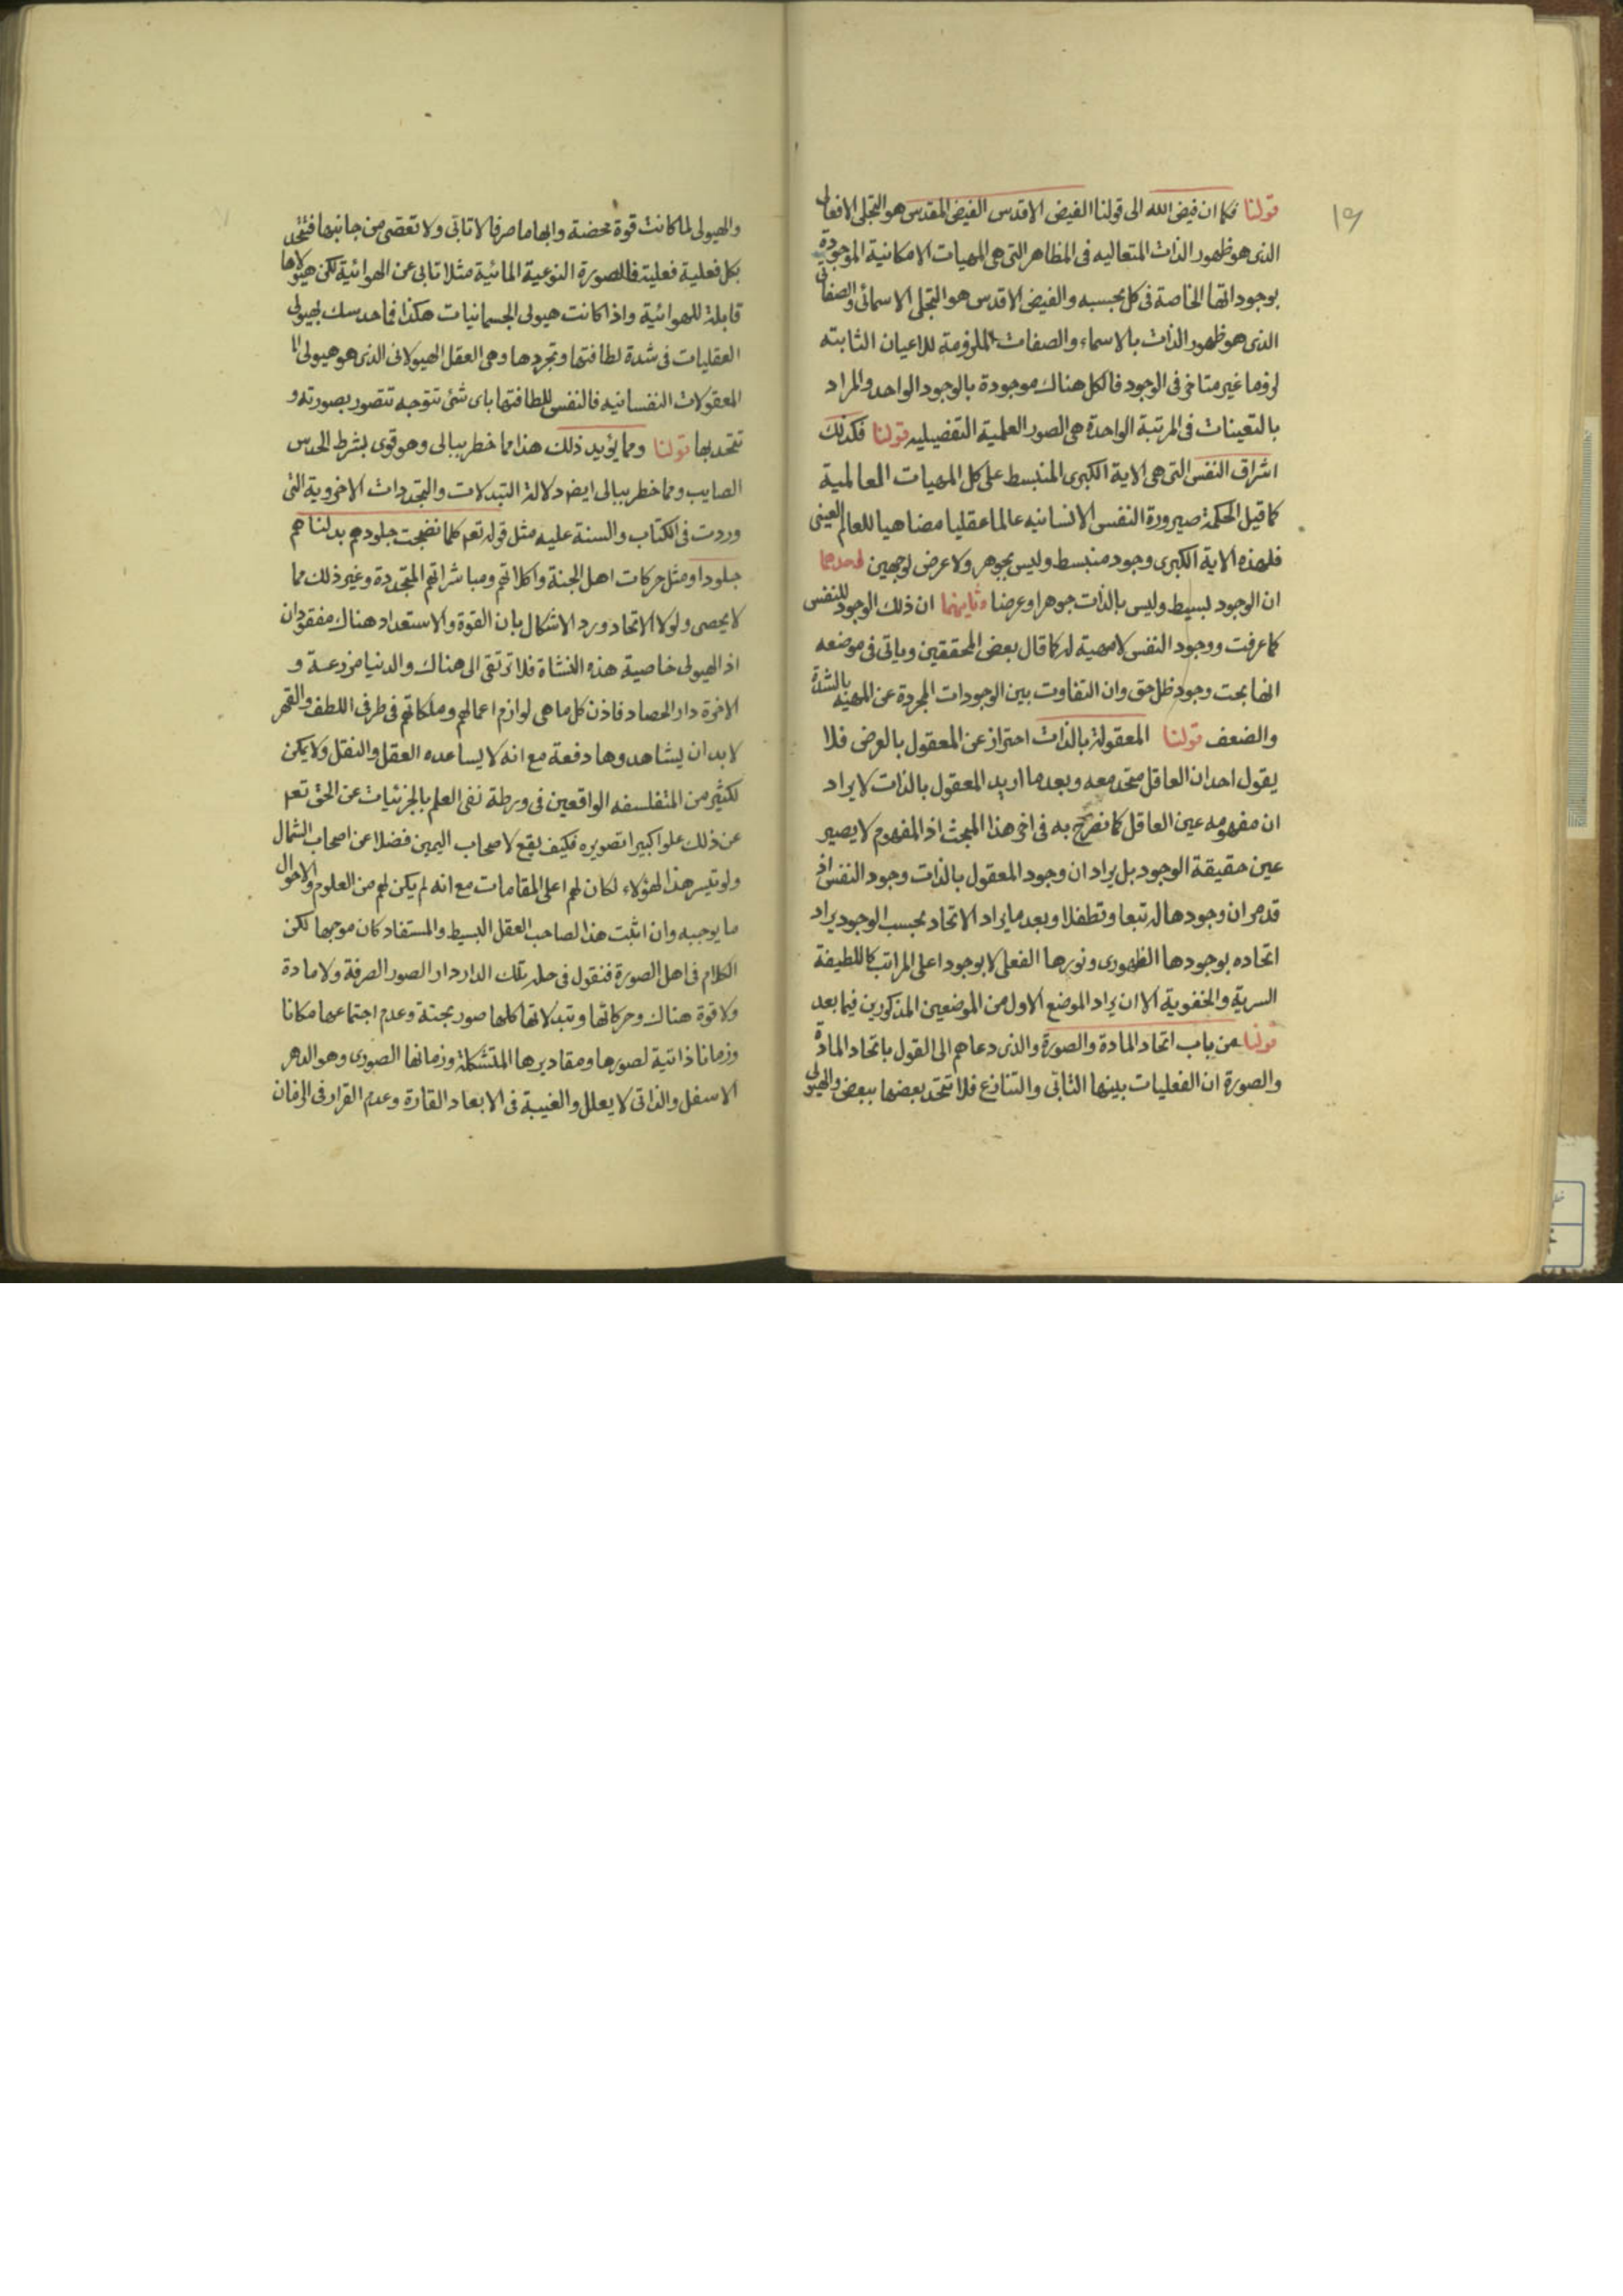 ١٥
قولنا فكما ان فيض الله الى قولنا الفيض الاقدس الفيض المقدس هو التجلى الافعالى
الذى هو ظهور الذات المتعاليه فى المظاهر التى هى المهيات الامكانية الموجودة
بوجوداتها الخاصة فى كل بحسبه والفيض الاقدس هو التجلى الاسمائى والصفاتى
الذى هو ظهور الذات بالاسماء والصفات الملزومة للاعيان الثابته
لزوما غير متاخر فى الوجود فالكل هناك موجودة بالوجود الواحد والمراد
بالتعينات فى المرتبة الواحدة هى الصور العلمية التفصيليه قولنا فكذلك
اشراق النفس التى هى الاية الكبرى المنبسط على كل المهيات العالمية
كما قيل الحكمة صيرورة النفس الانسانيه عالما عقليا مضاهيا للعالم العينى
فلهذه الاية الكبرى وجود منبسط وليس بجوهر ولا عرض لوجهين احدهما
ان الوجود بسيط وليس بالذات جوهرا وعرضا وثانيهما ان ذلك الوجود للنفس
كما عرفت ووجود النفس لا مهية له كما قال بعض المحققين وياتى فى موضعه
انها بحت وجود ظل حق وان التفاوت بين الوجودات المجردة عن المهية بالشدة
والضعف قولنا المعقولة بالذات احتراز عن المعقول بالعرض فلا
يقول احد ان العاقل متحد معه وبعد ما اريد المعقول بالذات لا يراد
ان مفهومه عين العاقل كما نصرح به فى اخر هذا المبحث اذ المفهوم لا يصير
عين حقيقة الوجود بل يراد ان وجود المعقول بالذات وجود النفس اذ
قد مر ان وجودها له تبعا وتطفلا وبعد ما يراد الاتحاد بحسب الوجود يراد
اتحاده بوجودها الظهورى ونورها الفعلى لا بوجود اعلى المراتب كاللطيفة
السرية والخفوية الا ان يراد الموضع الاول من الموضعين المذكورين فيما بعد
قولنا من باب اتحاد المادة والصورة والذى دعاهم الى القول باتحاد المادة
والصورة ان الفعليات بينها التابى والتنازع فلا تتحد بعضها ببعض والهيولى
والهيولى لما كانت قوة محضة وابهاما صرفا لا تابى ولا تعصى من جانبها فتتحد
بكل فعلية فعلية فالصورة النوعية المائية مثلا تابى عن الهوائية لكن هيولاها
قابلة للهوائية واذا كانت هيولى الجسمانيات هكذا فما حدسك بهيولى
العقليات فى شدة لطافتها وتجردها وهى العقل الهيولانى الذى هو هيولى
المعقولات النفسانيه فالنفس للطافتها باى شئ تتوجه تتصور بصورته و
تتحد بها قولنا ومما يؤيد ذلك هذا مما خطر ببالى وهو قوى بشرط الحدس
الصايب ومما خطر ببالى ايض دلالة التبدلات والتجددات الاخروية التى
وردت فى الكتاب والسنة عليه مثل قوله تعم كلما نضجت جلودهم بدلناهم
جلودا ومثل حركات اهل الجنة واكلاتهم ومباشراتهم المتجددة وغير ذلك مما
لا يحصى ولولا الاتحاد ورد الاشكال بان القوة والاستعداد هناك مفقودان
اذ الهيولى خاصية هذه النشاة فلا ترتقى الى هناك والدنيا مزرعة و
الاخرة دار الحصاد فاذن كل ما هى لوازم اعمالهم وملكاتهم فى طرفى اللطف والقهر
لا بد ان يشاهدوها دفعة مع انه لا يساعده العقل والنقل ولا يمكن
لكثير من المتفلسفه الواقعين فى ورطة نفى العلم بالجزئيات عن الحق تعم
عن ذلك علوا كبيرا تصويره فكيف يقع لاصحاب اليمين فضلا عن اصحاب الشمال
ولو تيسر هذا لهؤلاء لكان لهم اعلى المقامات مع انه لم يكن لهم من العلوم والاحوال
ما يوجبه وان اثبت هذا لصاحب العقل البسيط والمستفاد كان موجها لكن
الكلام فى اهل الصورة فنقول فى حله تلك الدار دار الصور الصرفة ولا مادة
ولا قوة هناك وحركاتها وتبدلاتها كلها صور بحتة وعدم اجتماعها مكانا
وزمانا ذاتية لصورها ومقاديرها المتشكلة وزمانها الصورى وهو الدهر
الاسفل والذاتى لا يعلل والغيبة فى الابعاد القارة وعدم القرار فى الزمان